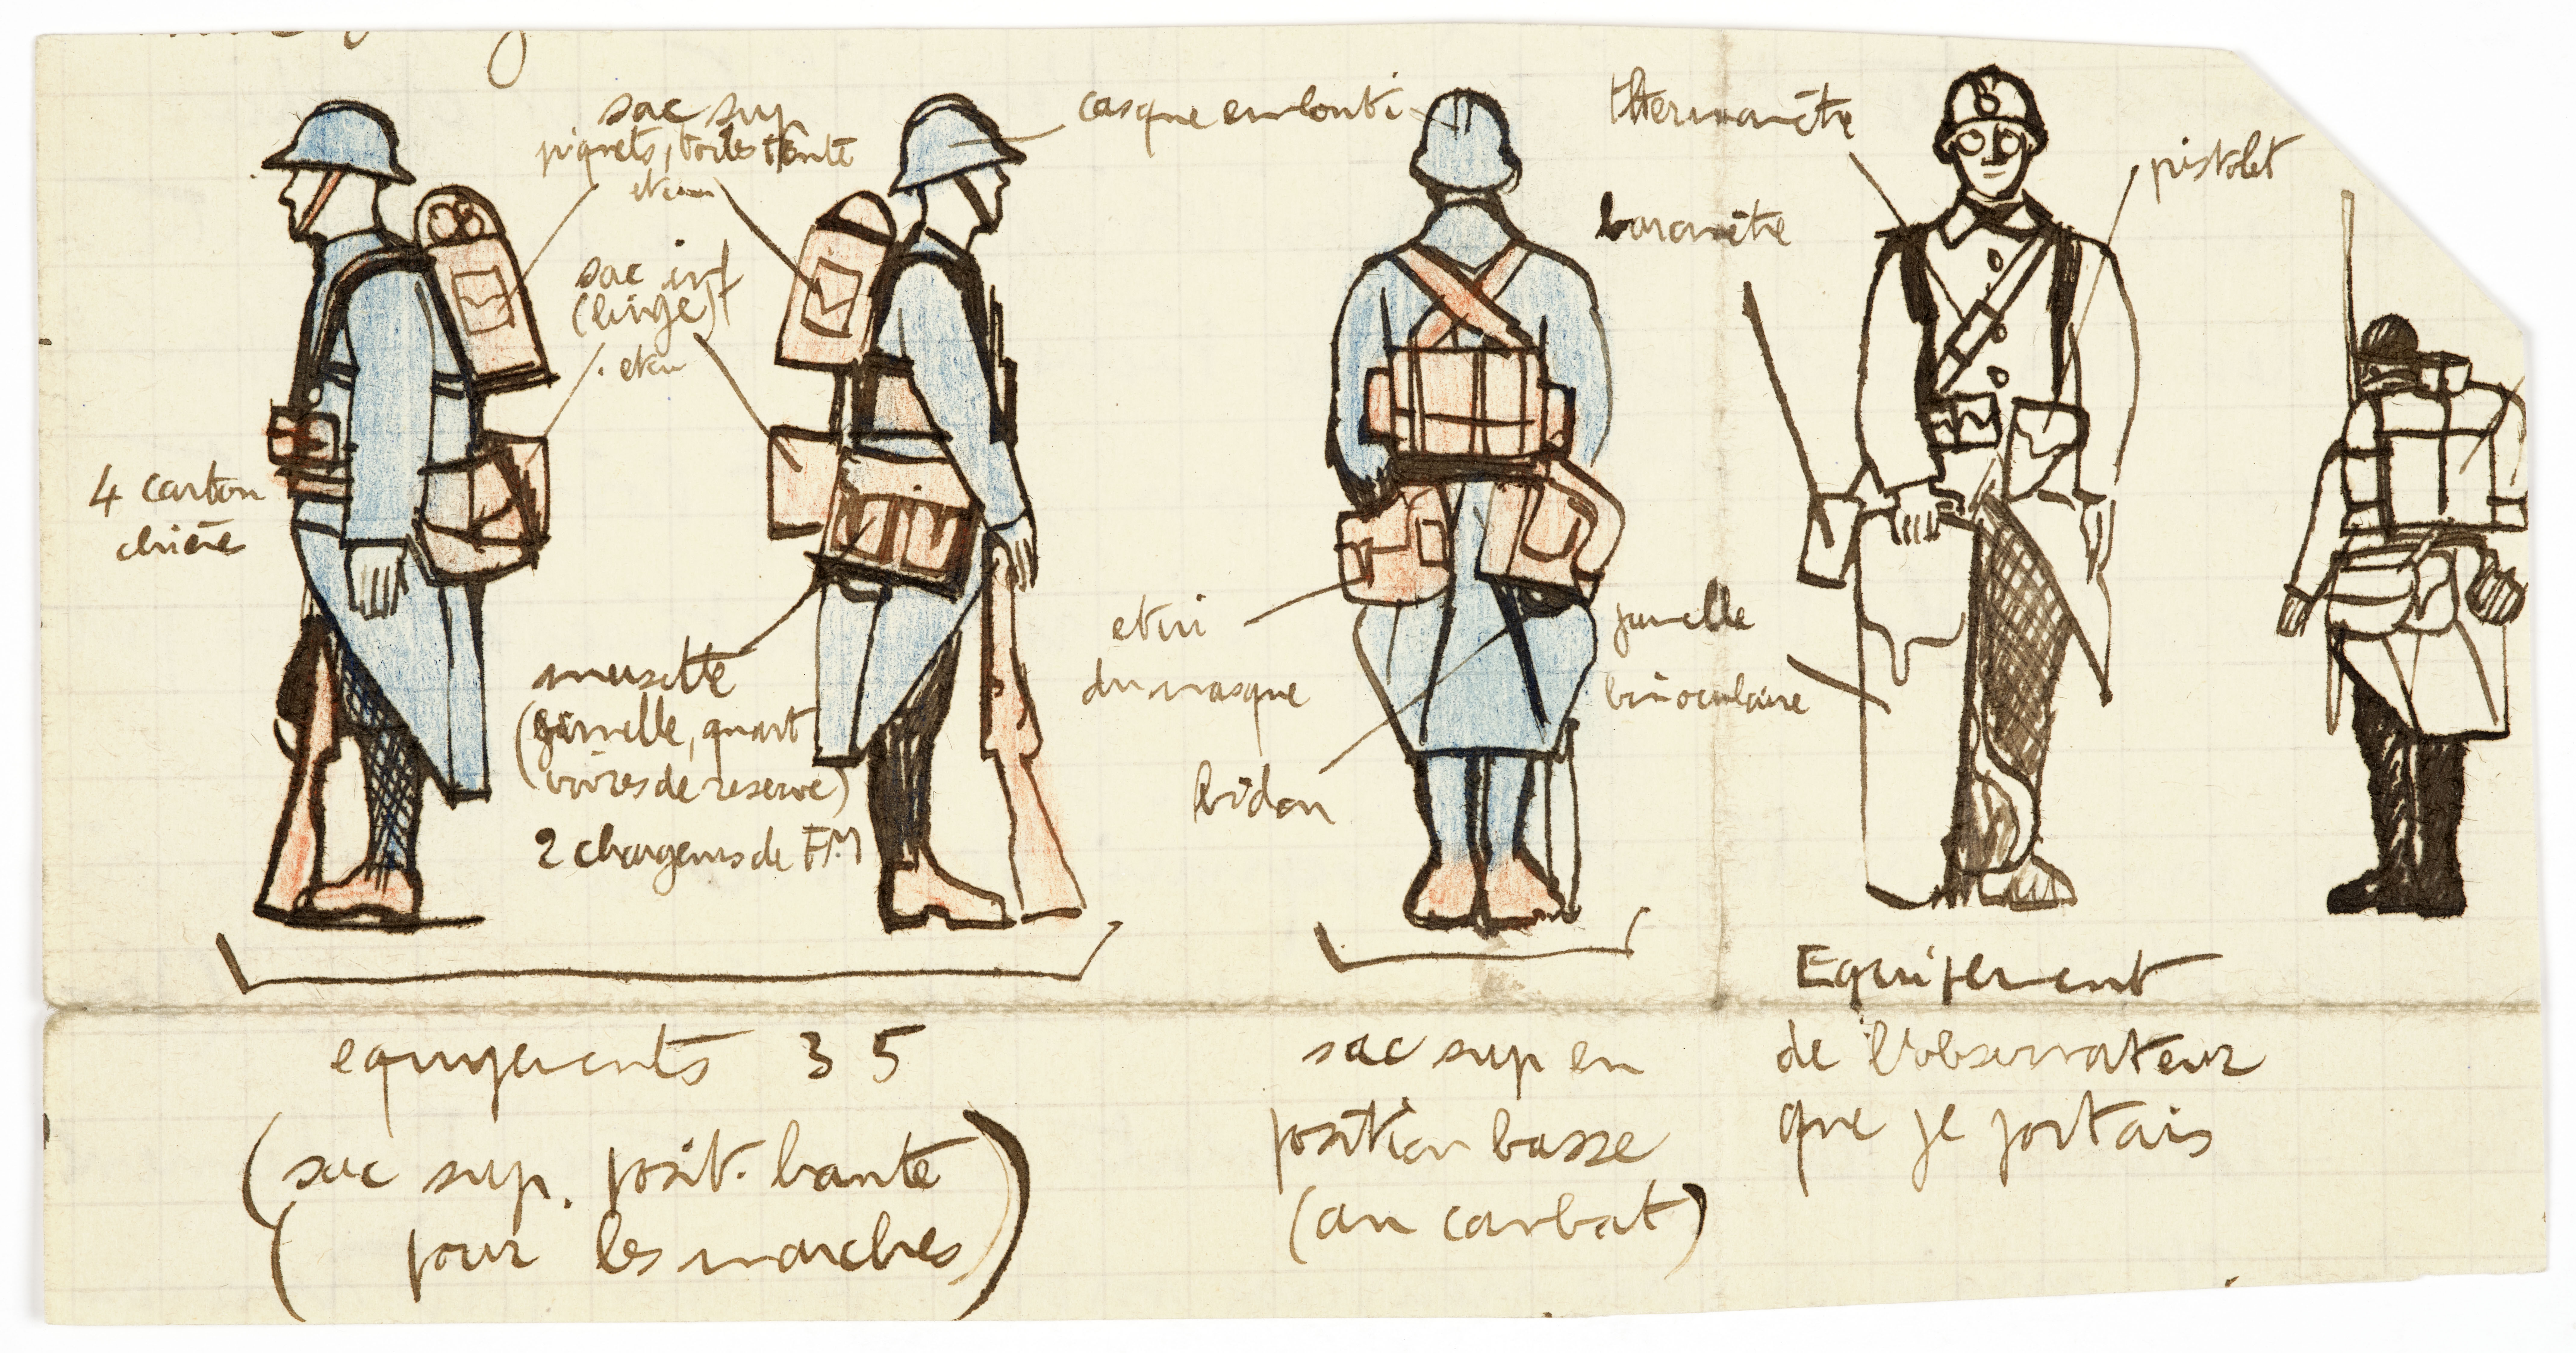 sac sup
piquets, toiles tente
etui
sac inf
(linge)
etui
casque embouti
thermomètre
pistolet
baromètre
4 carton
chière
etui
du masque
jumelle
binoculaire
musette
(gamelle, quart
vivres de reserve)
2 chargeurs de FM
bidon
equipements 35
(sac sup. posit. haute
pour les marches)
sac sup en
position basse
(au combat)
Equipement
de l'observateur
que je portais